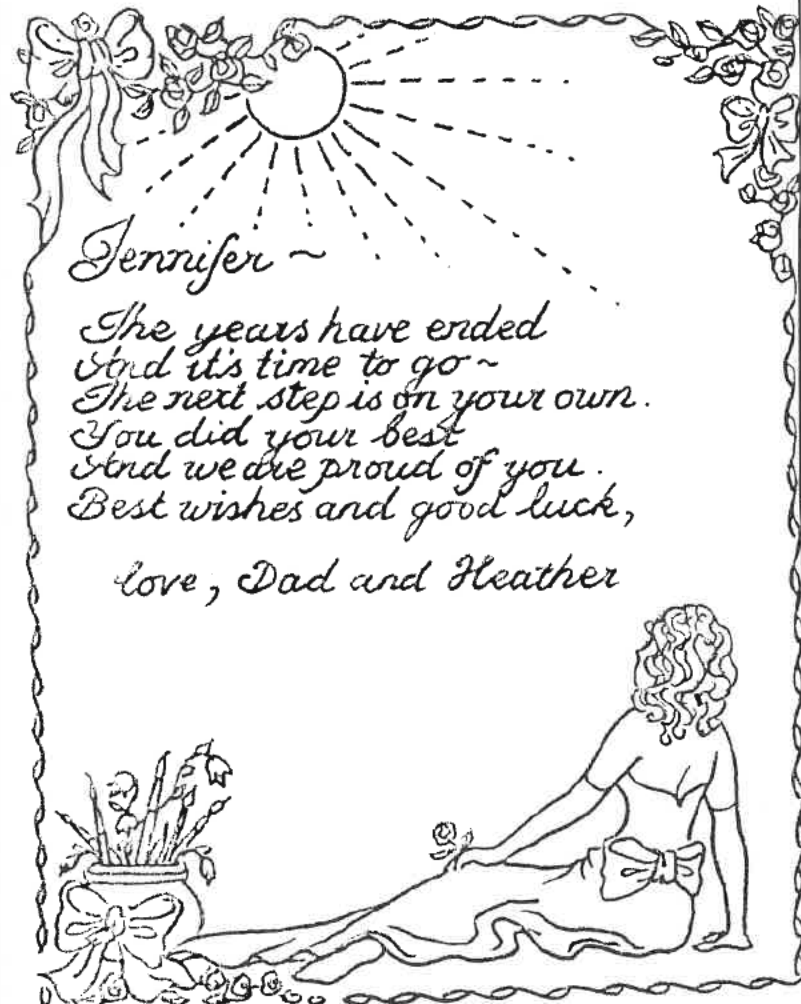 Jennifer ~
The years have ended
And it's time to go ~
The next step is on your own.
You did your best
And we are proud of you.
Best wishes and good luck,
love, Dad and Heather